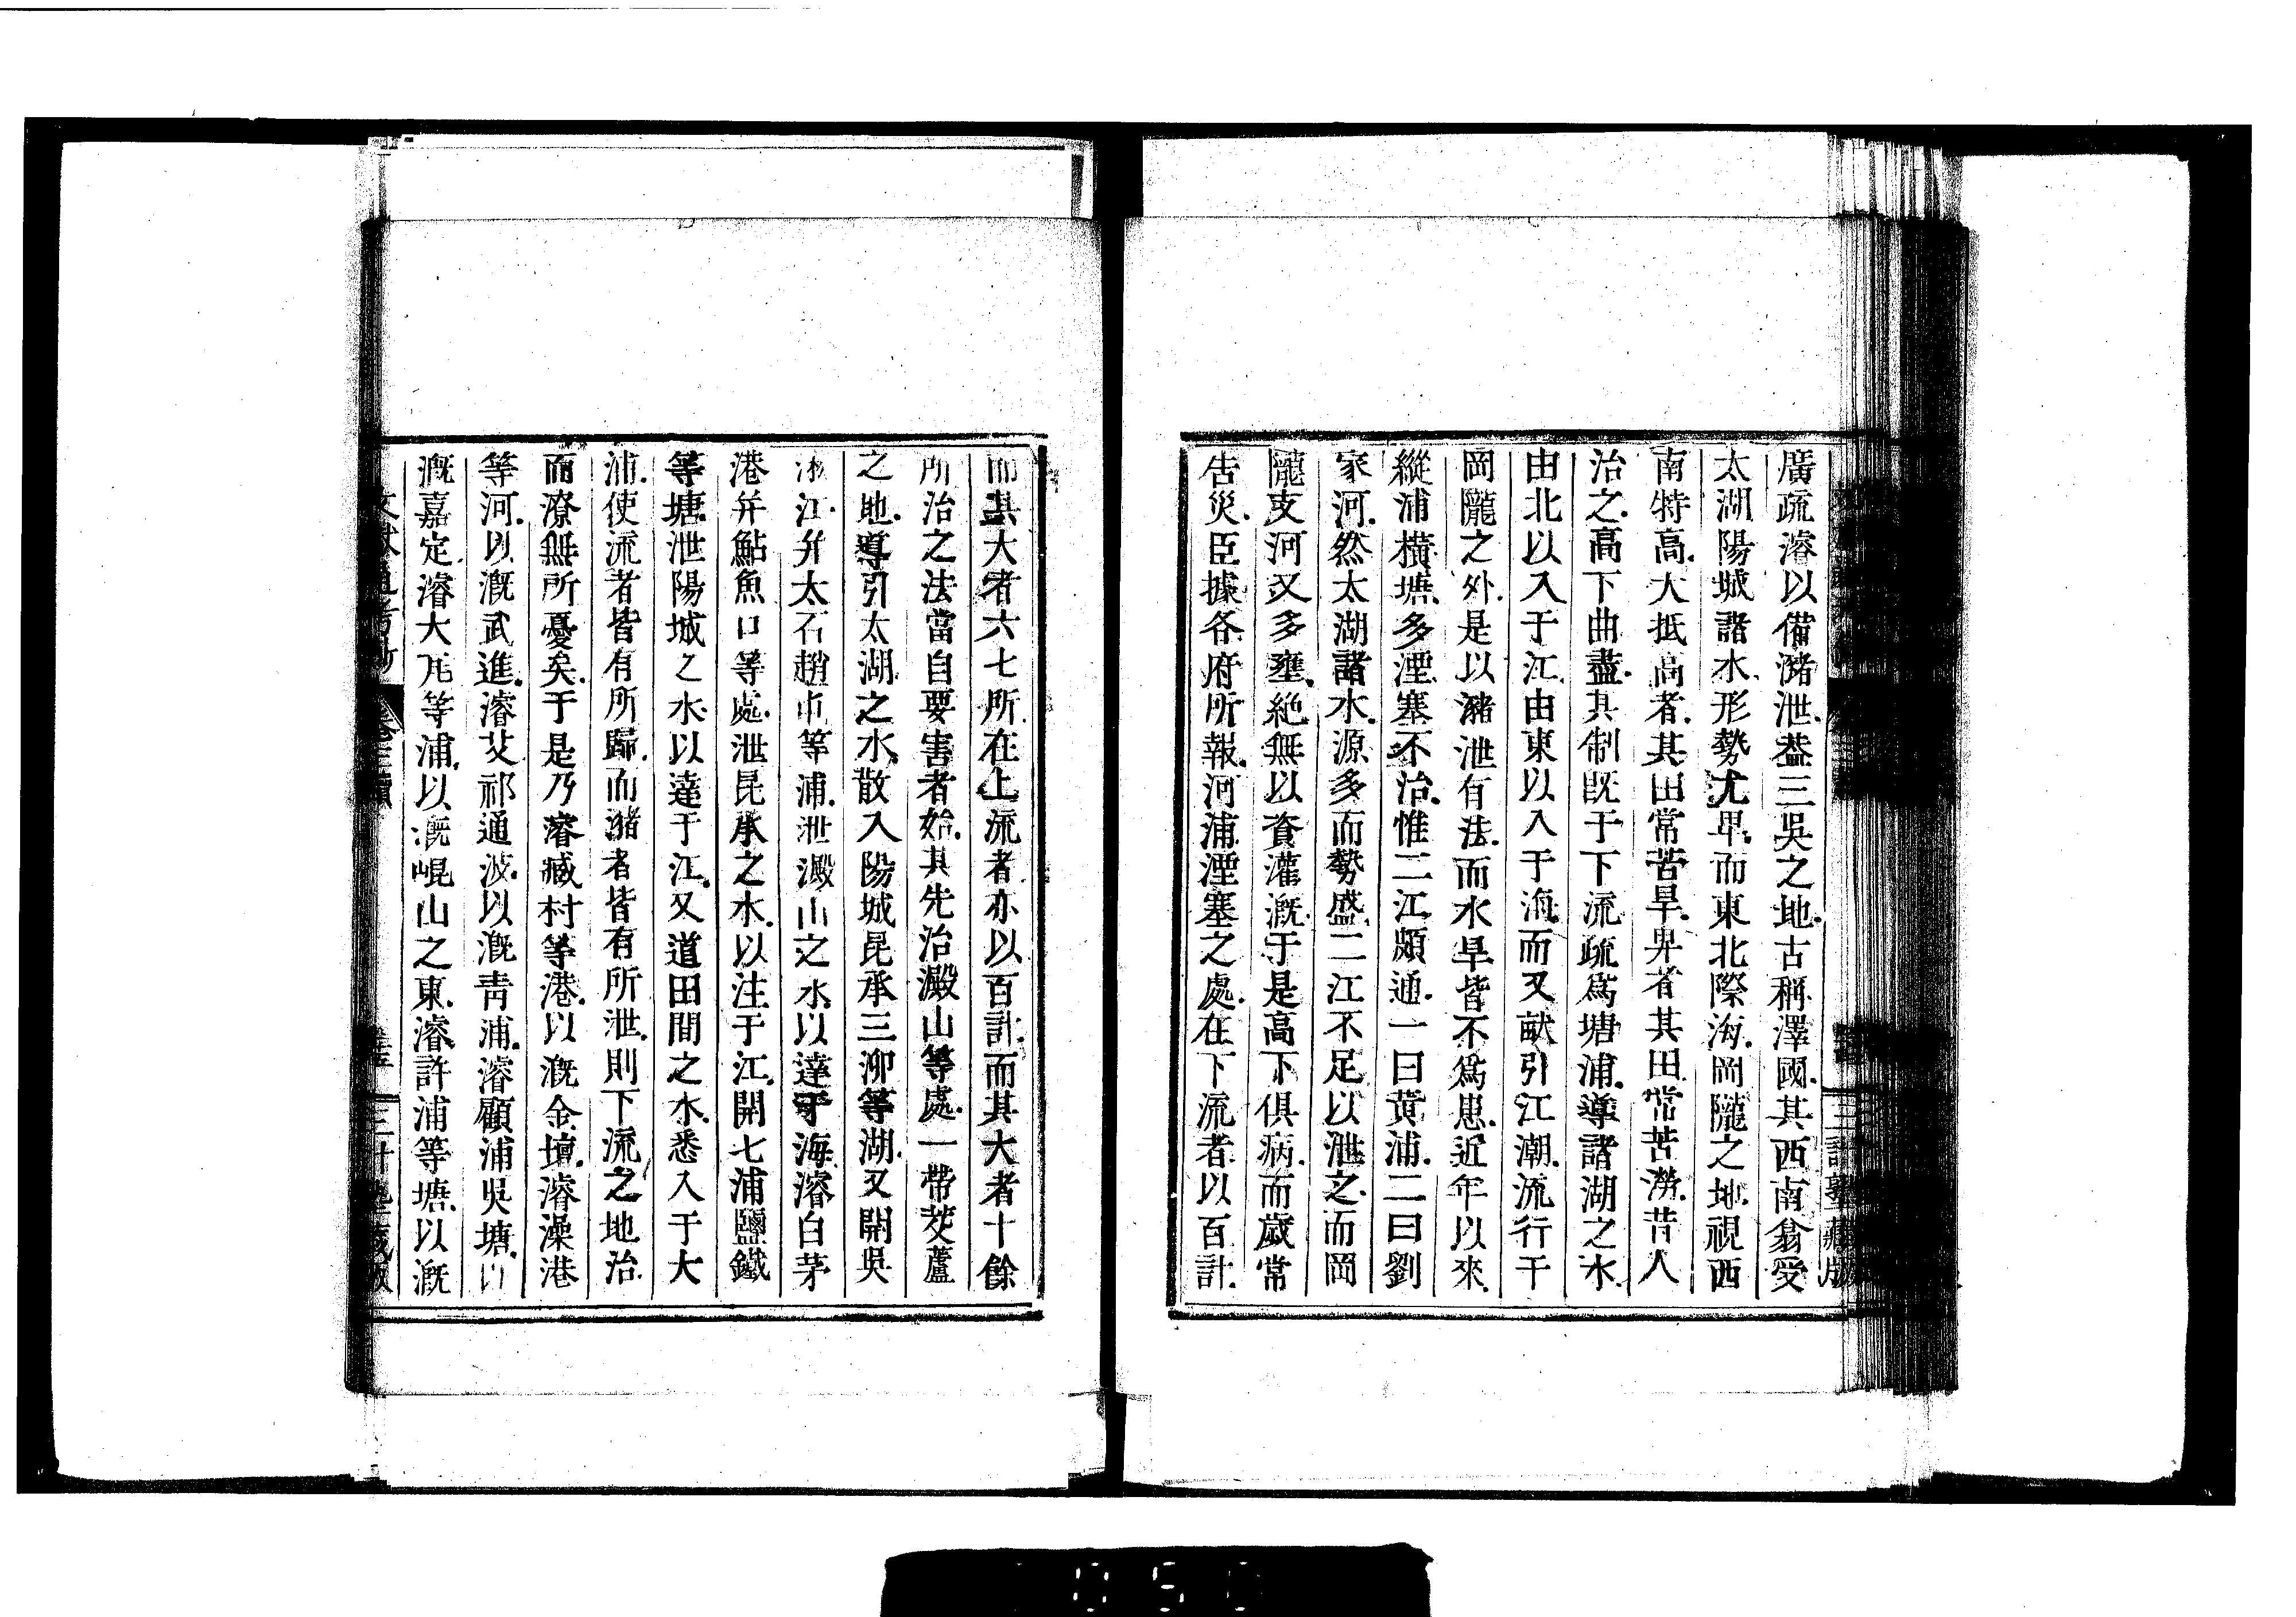 廣疏濬以備瀦泄葢三吳之地古稱澤國其西南翁受
太湖陽城諸水形勢尤卑而東北際海岡隴之地視西
南特高大抵高者其田常苦旱卑者其田常苦澇昔人
治之高下曲盡其制旣于下流疏爲塘浦導諸湖之水
由北以入于江由東以入于海而又畎引江潮流行干
岡隴之外是以瀦泄有法而水旱皆不爲患近年以來
縱浦橫塘多湮塞不治惟二江頗通一曰黃浦二曰劉
家河然太湖諸水源多而勢盛二江不足以泄之而岡
隴支河又多壅絕無以資灌漑于是高下俱病而歲常
告災臣據各府所報河浦湮塞之處在下流者以百計
而其大者六七所在上流者亦以百計而其大者十餘
所治之法當自要害者始其先治澱山等處一帶茭蘆
之地導引太湖之水散入陽城昆承三泖等湖又開吳
淞江幷太石趙屯等浦泄澱山之水以達于海濬白茅
港幷鮎魚口等處泄昆承之水以注于江開七浦鹽鐵
等塘泄陽城之水以達于江又道田間之水悉入于大
浦使流者皆有所歸而瀦者皆有所泄則下流之地治
而潦無所憂矣于是乃濬臧村等港以漑金壇濬澡港
等河以漑武進濬艾祁通波以漑靑浦濬顧浦吳塘以
漑嘉定濬大瓦等浦以漑崐山之東濬許浦等塘以漑